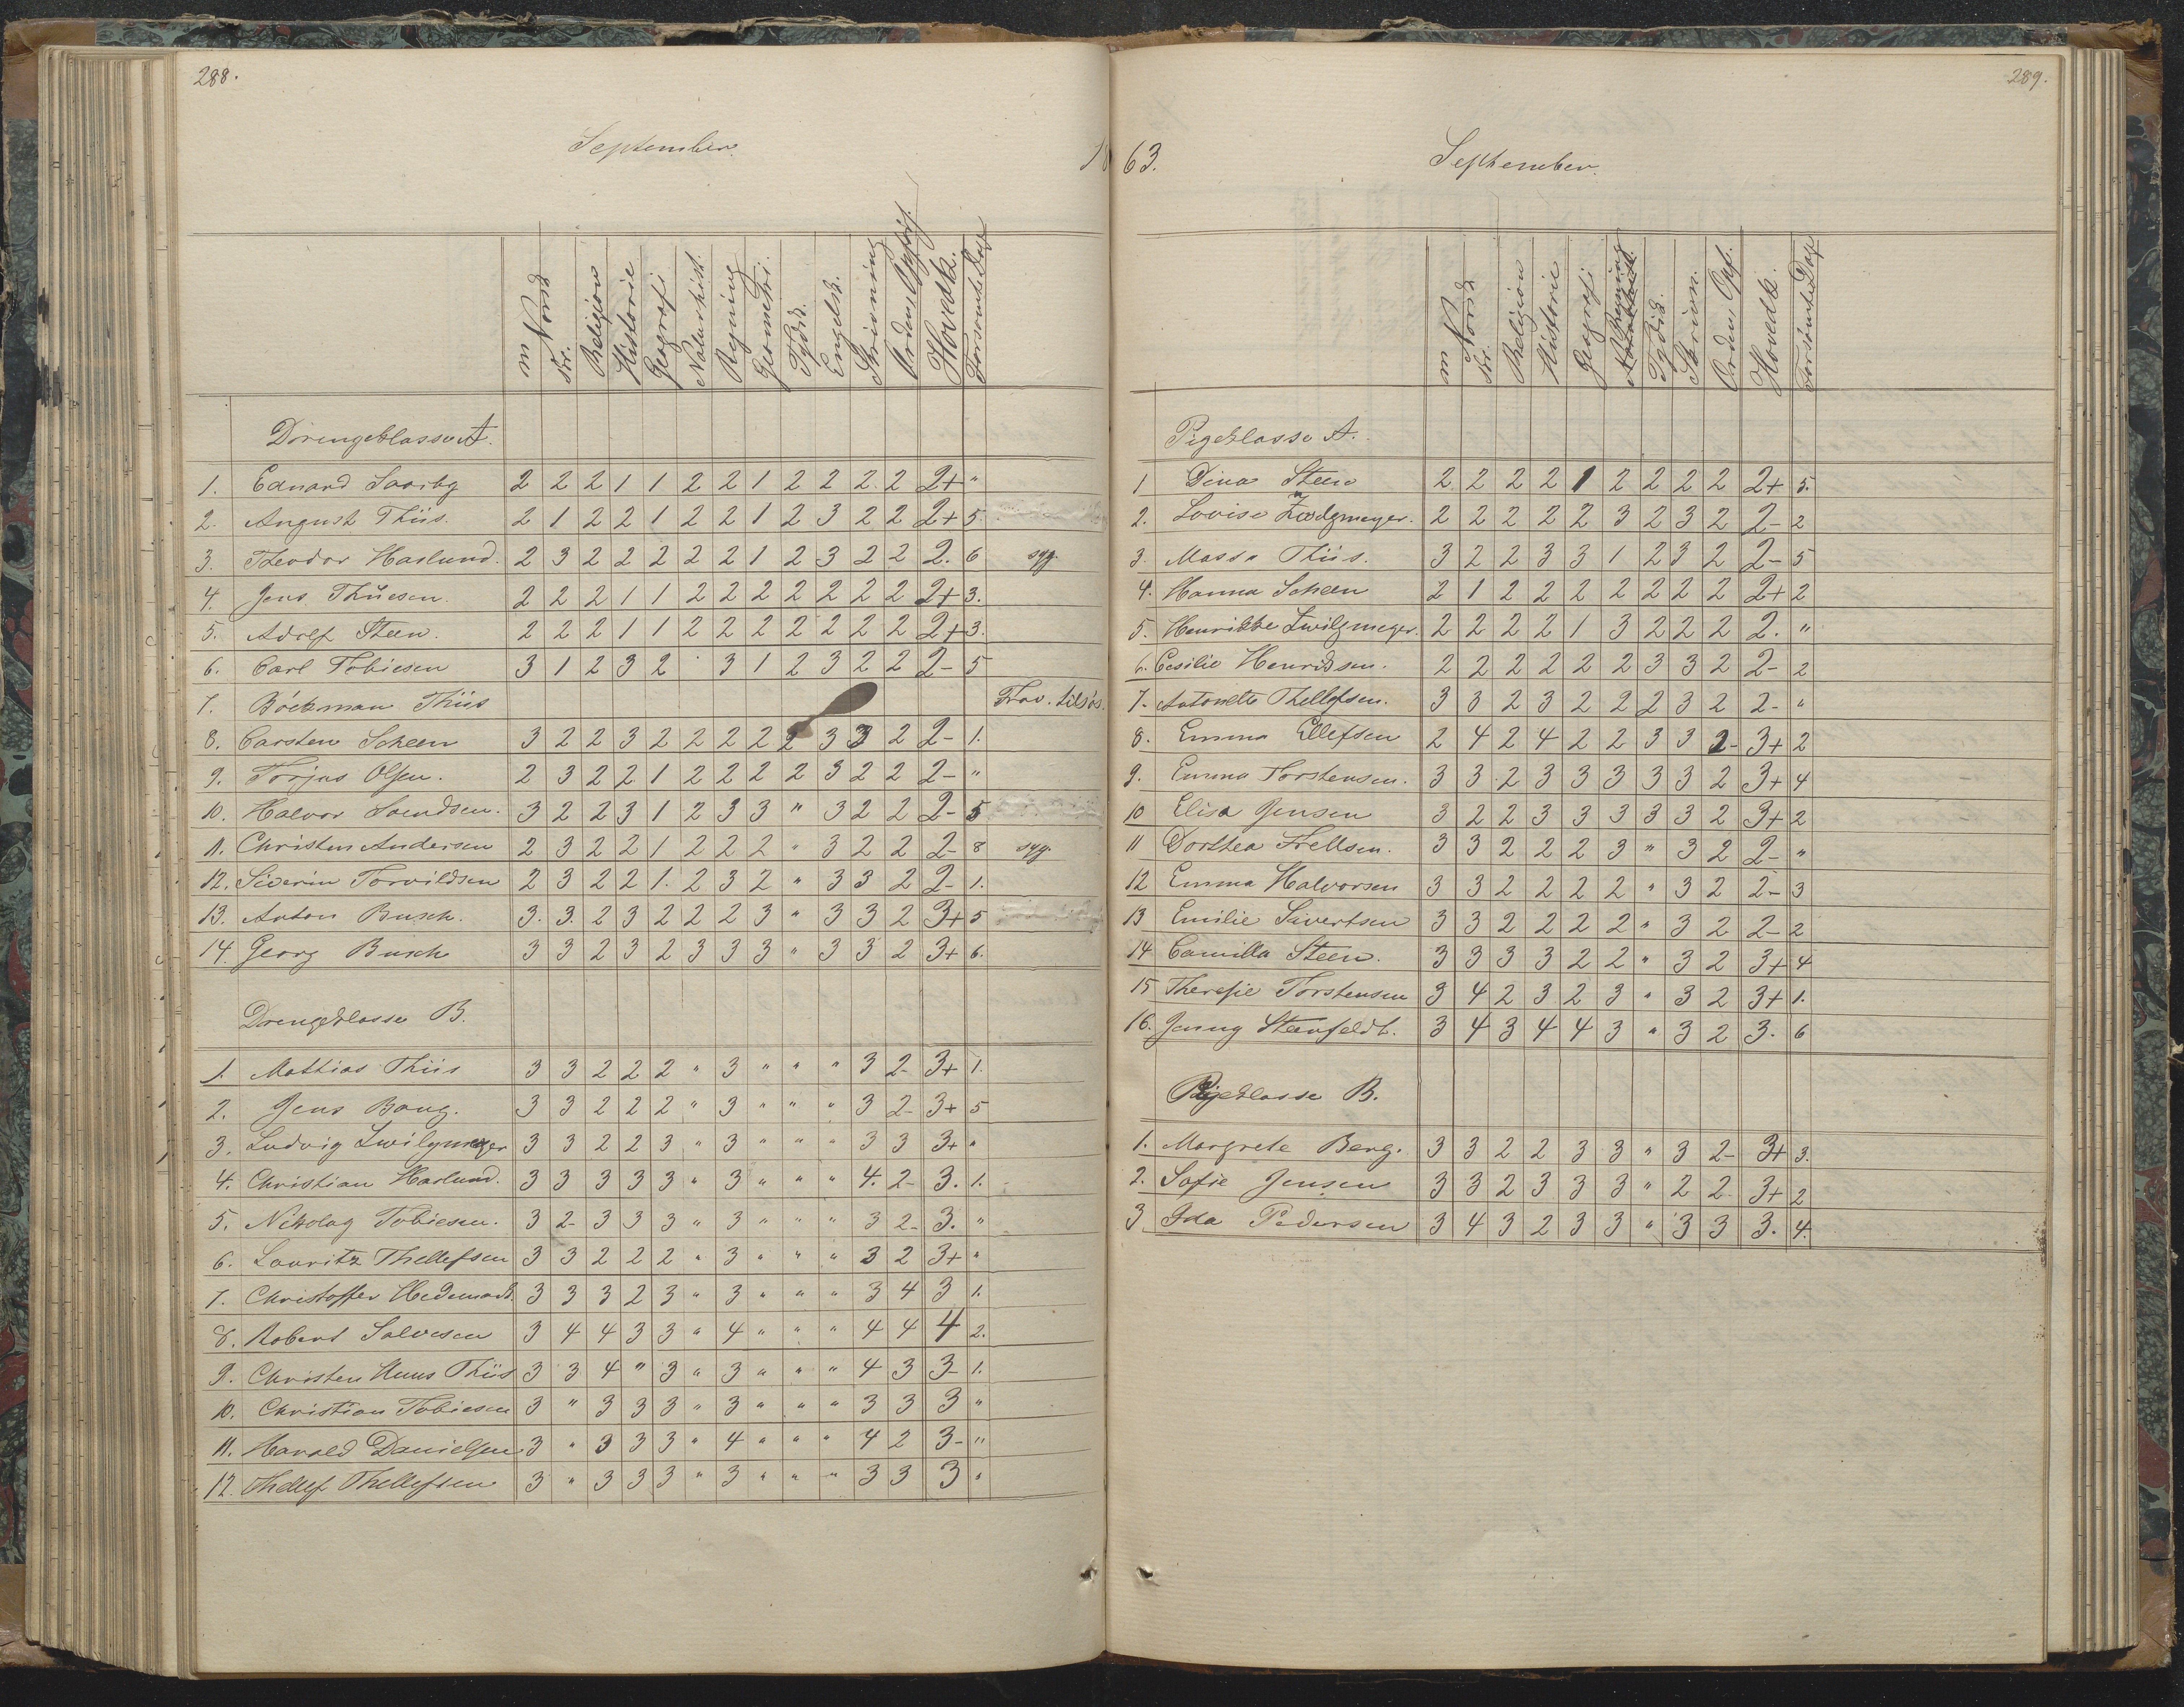 288.
September.
18
m. Norsk skr. Religion Historie Geografi Naturhist. Regning Geometri. Tydsk. Engelsk. Skrivning Orden Opførs. Hovedk. Forsømte Dage
Drengeklasse A.
1. Eduard Saxeby 2 2 2 1 1 2 2 1 2 2 2 2 2+ "
2. August Thiis. 2 1 2 2 1 2 2 1 2 3 2 2 2+ 5.
3. Theodor Haslund. 2 3 2 2 2 2 2 1 2 3 2 2 2. 6 syg.
4. Jens Thüesen. 2 2 2 1 1 2 2 2 2 2 2 2 2+ 3.
5. Adolf Steen. 2 2 2 1 1 2 2 2 2 2 2 2 2+ 3.
6. Carl Tobiesen 3 1 2 3 2 · 3 1 2 3 2 2 2- 5
7. Böckman Thiis Frav. tilsøs.
8. Carsten Scheen 3 2 2 3 2 2 2 2 2 3 3 2 2- 1.
9. Torjus Olsen. 2 3 2 2 1 2 2 2 2 3 2 2 2- "
10. Halvor Svendsen. 3 2 2 3 1 2 3 3 " 3 2 2 2- 5
11. Christen Andersen 2 3 2 2 1 2 2 2 " 3 2 2 2- 8 syg.
12. Siverin Torvildsen 2 3 2 2 1. 2 3 2 " 3 3 2 2- 1.
13. Anton Busch. 3. 3. 2 3 2 2 2 3 " 3 3 2 3+ 5
14. Georg Busch 3 3 2 3 2 3 3 3 " 3 3 2 3+ 6.
Drengeklasse B.
1. Mattias Thiis 3 3 2 2 2 " 3 " " " 3 2- 3+ 1.
2. Jens Bang. 3 3 2 2 2 " 3 " " " 3 2- 3+ 5
3. Ludvig Zwilgmeyer 3 3 2 2 3 " 3 " " " 3 3 3+ "
4. Christian Haslund. 3 3 3 3 3 " 3 " " " 4. 2- 3. 1.
5. Nikolay Tobiesen. 3 2- 3 3 3 " 3 " " " 3 2- 3. "
6. Lauritz Thellefsen 3 3 2 2 2 " 3 " " " 3 2 3+ "
7. Christoffer Hedemark. 3 3 3 2 3 " 3 " " " 3 4 3 1.
8. Robert Salvesen 3 4 4 3 3 " 4 " " " 4 4 4 2.
9. Christen Huus Thiis 3 3 4 " 3 " 3 " " " 4 3 3- 1.
10. Christian Tobiesen 3 " 3 3 3 " 3 " " " 3 3 3 "
11. Harald Danielsen 3 " 3 3 3 " 4 " " " 4 2 3- "
12. Thellef Thellefsen 3 " 3 3 3 " 3 " " " 3 3 3 "
289.
63.
September.
m. Norsk skr. Religion Historie Geografi Regning Tydsk. Skrivn. Orden Opf. Hovedk. Forsømte Dage
Pigeklasse A.
1 Dina Steen 2 2 2 2 1 2 2 2 2 2+ 5.
2. Lovise Zwilgmeyer. 2 2 2 2 2 3 2 3 2 2- 2
3. Massa Thiis. 3 2 2 3 3 1 2 3 2 2- 5
4. Hanna Scheen 2 1 2 2 2 2 2 2 2 2+ 2
5. Henrikke Zwilgmeyer. 2 2 2 2 1 3 2 2 2 2. "
6. Cesilie Henriksen. 2 2 2 2 2 2 3 3 2 2- 2
7. Antonette Thellefsen. 3 3 2 3 2 2 2 3 2 2- "
8. Emma Ellefsen 2 4 2 4 2 2 3 3 2- 3+ 2
9. Emma Torstensen. 3 3 2 3 3 3 3 3 2 3+ 4
10 Elisa Jensen 3 2 2 3 3 3 3 3 2 3+ 2
11 Dorthea Frellsen. 3 3 2 2 2 3 " 3 2 2- "
12 Emma Halvorsen 3 3 2 2 2 2 " 3 2 2- 3
13 Emilie Sivertsen 3 3 2 2 2 2 " 3 2 2- 2
14 Camilla Steen. 3 3 3 3 2 2 " 3 2 3+ 4
15 Theresie Torstensen 3 4 2 3 2 3 " 3 2 3+ 1.
16. Jenny Steenfeldt. 3 4 3 4 4 3 " 3 2 3. 6
Pigeklasse B.
1. Margrete Berg. 3 3 2 2 3 3 " 3 2- 3+ 3.
2. Sofie Jensen 3 3 2 3 3 3 " 2 2 3+ 2
3 Ida Pedersen 3 4 3 2 3 3 " 3 3 3. 4.